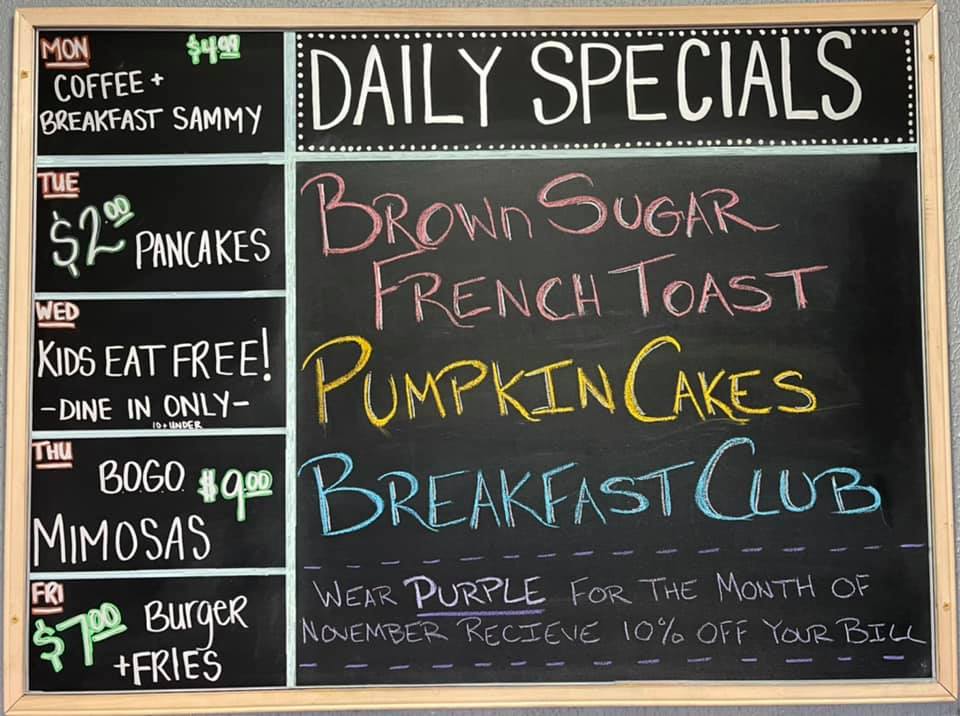 MON $4.99
COFFEE +
BREAKFAST SAMMY
TUE
$2.00 PANCAKES
WED
KIDS EAT FREE!
-DINE IN ONLY-
10 + UNDER
THU
B.O.G.O. $9.00
MIMOSAS
FRI
$7.00 BURGER
+FRIES
DAILY SPECIALS
BROWN SUGAR
FRENCH TOAST
PUMPKIN CAKES
BREAKFAST CLUB
WEAR PURPLE FOR THE MONTH OF
NOVEMBER RECIEVE 10% OFF YOUR BILL